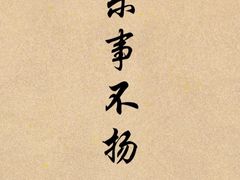 事不扬